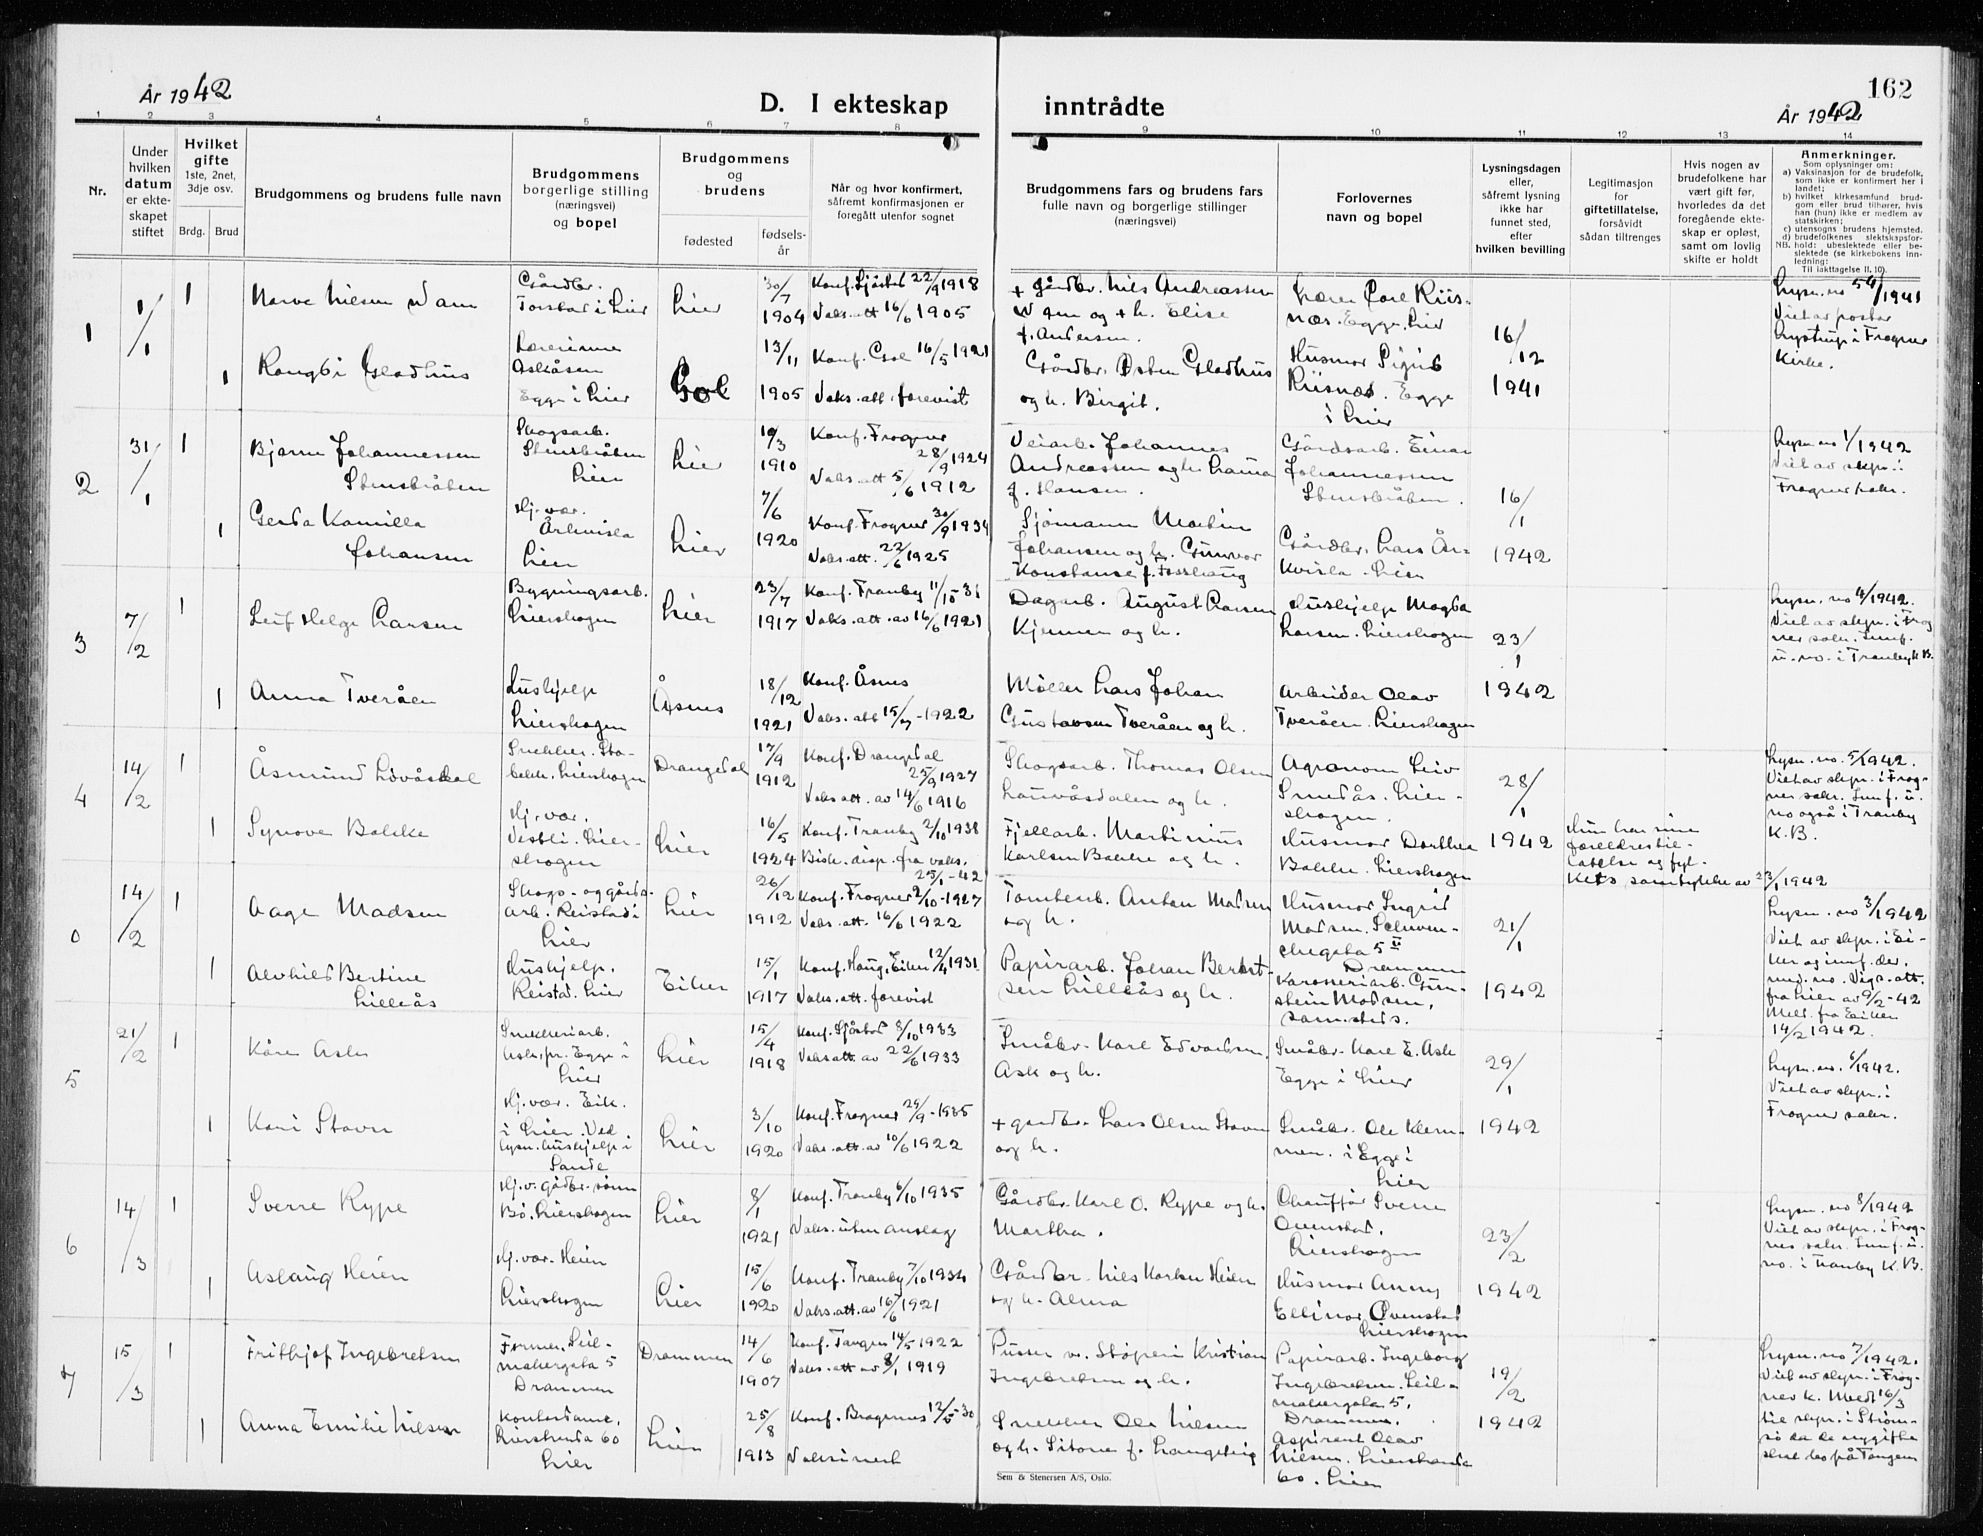 162
År 1942
D. I ekteskap inntrådte
År 1942
1 2 3 4 5 6 7 8 9 10 11 12 13 14
Nr.
Under
hvilken
datum
er ekte-
skapet
stiftet
Hvilket
gifte
1ste, 2net,
3dje osv.
Brdg. Brud
Brudgommens og brudens fulle navn
Brudgommens
borgerlige stilling
(næringsvei)
og bopel
Brudgommens
og
brudens
fødested
fødsels-
år
Når og hvor konfirmert,
såfremt konfirmasjonen er
foregått utenfor sognet
Brudgommens fars og brudens fars
fulle navn og borgerlige stillinger
(næringsvei)
Forlovernes
navn og bopel
Lysningsdagen
eller,
såfremt lysning
ikke har
funnet sted,
efter
hvilken bevilling
Legitimasjon
for
giftetillatelse,
forsåvidt
sådan tiltrenges
Hvis nogen av
brudefolkene har
vært gift før,
hvorledes da det
foregående ekte-
skap er opløst,
samt om lovlig
skifte er holdt
Anmerkninger.
Som oplysninger om:
a) Vaksinasjon for de brudefolk,
som ikke er konfirmert her i
landet;
b) hvilket kirkesamfund brud-
gom eller brud tilhører, hvis
han (hun) ikke er medlem av
statskirken;
c) utensogns brudens hjemsted.
d) brudefolkenes slektskapsfor-
NB. hold: ubeslektede eller be-
slektede (se kirkebokens inn-
ledning:
Til iakttagelse II. 10).
1
1/1
1
Gårdbr.
Torstad i Lier
Lier
30/7
1904
Konf. Sjåstad 22/9 1918
Vaks. att 16/6 1905
+ Gårdbr. Nils Andreassen
og + h. Elise
f. Andersen.
Lærer Carl Riis-
næs. Egge, Lier
16/12
1941
Lysn. no 54/1941
Kirke.
1
Rangdi Gladhus
Lærerinne
Askåsen
Egge i Lier
Gol
13/11
1905
Konf. Gol 16/5 1921
Vaks. att. forevist
Gårdbr. Østen Gladhus
og h. Birgit.
Husmor Sigrid
Riisnæs. Egge
i Lier
2
31/1
1
Bjarne Johannessen
Stensbråten
Skogsarb.
Stensbråten
Lier
Lier
19/3
1910
Konf. Frogner
28/9 1924
Vaks. att 5/6 1912
Veiarb. Johannes
Andreassen og h. Laura
f. Hansen.
Gårdsarb. Einar
Johannessen
Stensbråten.
16/1
1942
Lysn. no 1/1942
Viet av sogepr. i
Frogner sokn.
1
Gerda Kamilla
Johansen
Hj. vær.
Årkvisla
Lier
Lier
7/6
1920
Konf. Frogner 30/9 1934
Vaks. att. 22/6 1925
Sjømann Martin
Johansen og h. Gunvor
Konstanse f. Fosshaug
Gårdbr. Lars År-
kvisla. Lier
3
7/2
1
Leif Helge Larsen
Bygningsarb.
Lierskogen
Lier
23/7
1917
Konf. Tranby 11/10-31
Vaks. att. av 16/6 1921
Dagarb. August Larsen
Kjennen og h.
Hushjelp Magda
Larsen. Lierskogen
23/1
1942
Lysn. no 4/1942.
1
Anna Tveråen
Hushjelp
Lierskogen
Åsnes
18/12
1921
Konf. Åsnes
Vaks. att 15/7-1922
Møller Lars Johan
Gustavsen Tveråen og h.
Arbeider Olav
Tveråen. Lierskogen
4
14/2
1
Åsmund Lauvåsdal
Snekker. Sta-
bekk. Lierskogen
Drangedal
17/9
1912
Konf. Drangedal
25/9 1927
Vaks att. av 14/6 1916
Skogsarb. Thomas Olsen
Lauvåsdalen og h.
Agronom Leiv
Smedås. Lier-
skogen.
28/1
1942
Lysn. no. 5/1942.
no også i Tranby
K. B.
1
Synøve Bakke
Hj. vær.
Vestli. Lier-
skogen
Lier
16/5
1924
Konf. Tranby 2/10 1938
Bisk. disp. fra vaks.
25/1-42
Fjellarb. Martinius
Karlsen Bakke og h.
Husmor Dorthea
Bakke. Lierskogen
Hun har sine
foreldres til-
latelse og fyl-
kets samtykke av 23/1 1942
0
14/2
1
Aage Madsen
Skogs- og gårds-
arb. Reistad i
Lier
Lier
26/12
1912
Konf. Frogner 2/10-1927
Vaks. att. 16/6 1922
Tomtearb. Anton Madsen
og h.
Husmor Ingrid
Madsen.
Drammen
21/1
1942
Lysn. no 3/1942
Viet av sogepr. i Ei-
ker og innf. der.
fra Lier av 9/2-42
Meld. fra Eiker
14/2 1942.
1
Alvhild Bertine
Lilleås
Hushjelp.
Reistad. Lier
Eiker
15/1
1917
Konf. Haug, Eiker 12/4 1931
Vaks. att. forevist
Papirarb. Johan Bernt-
sen Lilleås og h.
Karosseriarb. Gun-
stein Madsen,
samsteds.
5
21/2
1
Kåre Ask
Snekkeriarb.
Ask, pr. Egge i
Lier
Lier
15/4
1918
Konf. Sjåstad 8/10 1933
Vaks att. av 22/6 1933
Småbr. Karl Edvardsen
Ask og h.
Småbr. Karl E. Ask
Egge i Lier
29/1
1942
Lysn. no. 6/1942.
Viet av sogepr. i
Frogner sokn.
1
Kari Stavn
Hj. vær. Eik.
i Lier. Ved
lysn. hushjelp i
Sande
Lier
3/10
1920
Konf. Frogner 29/9-1935
Vaks. att. av 10/6 1922
+ gardbr. Lars Olsen Stavn
og h.
Småbr. Ole Klem-
men. i Egge i
Lier
6
14/3
1
Sverre Rype
Hj. v. gårdbr. sønn
Bø. Lierskogen
Lier
8/1
1921
Konf. Tranby 6/10 1935
Vaks. uten anslag
Gårdbr. Karl O. Rype og h.
Martha.
Chauffør Sverre
Ovenstad.
Lierskogen
23/2
1942
Lysn. no 8/1942
no. i Tranby K. B.
1
Aslaug Heien
Hj. vær. Heien
Lierskogen
Lier
15/6
1920
Konf. Tranby 7/10 1934
Vaks. att. av 16/6 1921
Gårdbr. Nils Karlsen Heien
og h. Alma
Husmor Anny
Ellinor Ovenstad
Lierskogen
7
15/3
1
Frithjof Ingebretsen
Former. Seil-
makergata 5
Drammen
Drammen
14/6
1907
Konf. Tangen 14/5 1922
Vaks. att av 8/1 1919
Pusser v. Støperi Kristian
Ingebretsen og h.
Papirarb. Ingeborg
Ingebretsen. Seil-
makergata 5.
Drammen.
19/2
1942
Lysn. no 7/1942.
Viet av sogepr. i Frog-
ner k. Meldt 16/3
til sogepr. i Strøm-
sø da de nygifte
skal bo på Tangen
1
Anna Emilie Nilsen
Kontordame.
Lierstranda 60
Lier
Lier
25/8
1913
Konf. Bragernes 12/5-30
Vaksinert
Snekker Ole Nilsen
og h. Sitona f. Langsteig
Aspirant Olav
Nilsen. Lierstranda
60. Lier
Sem & Stenersen A/S, Oslo.